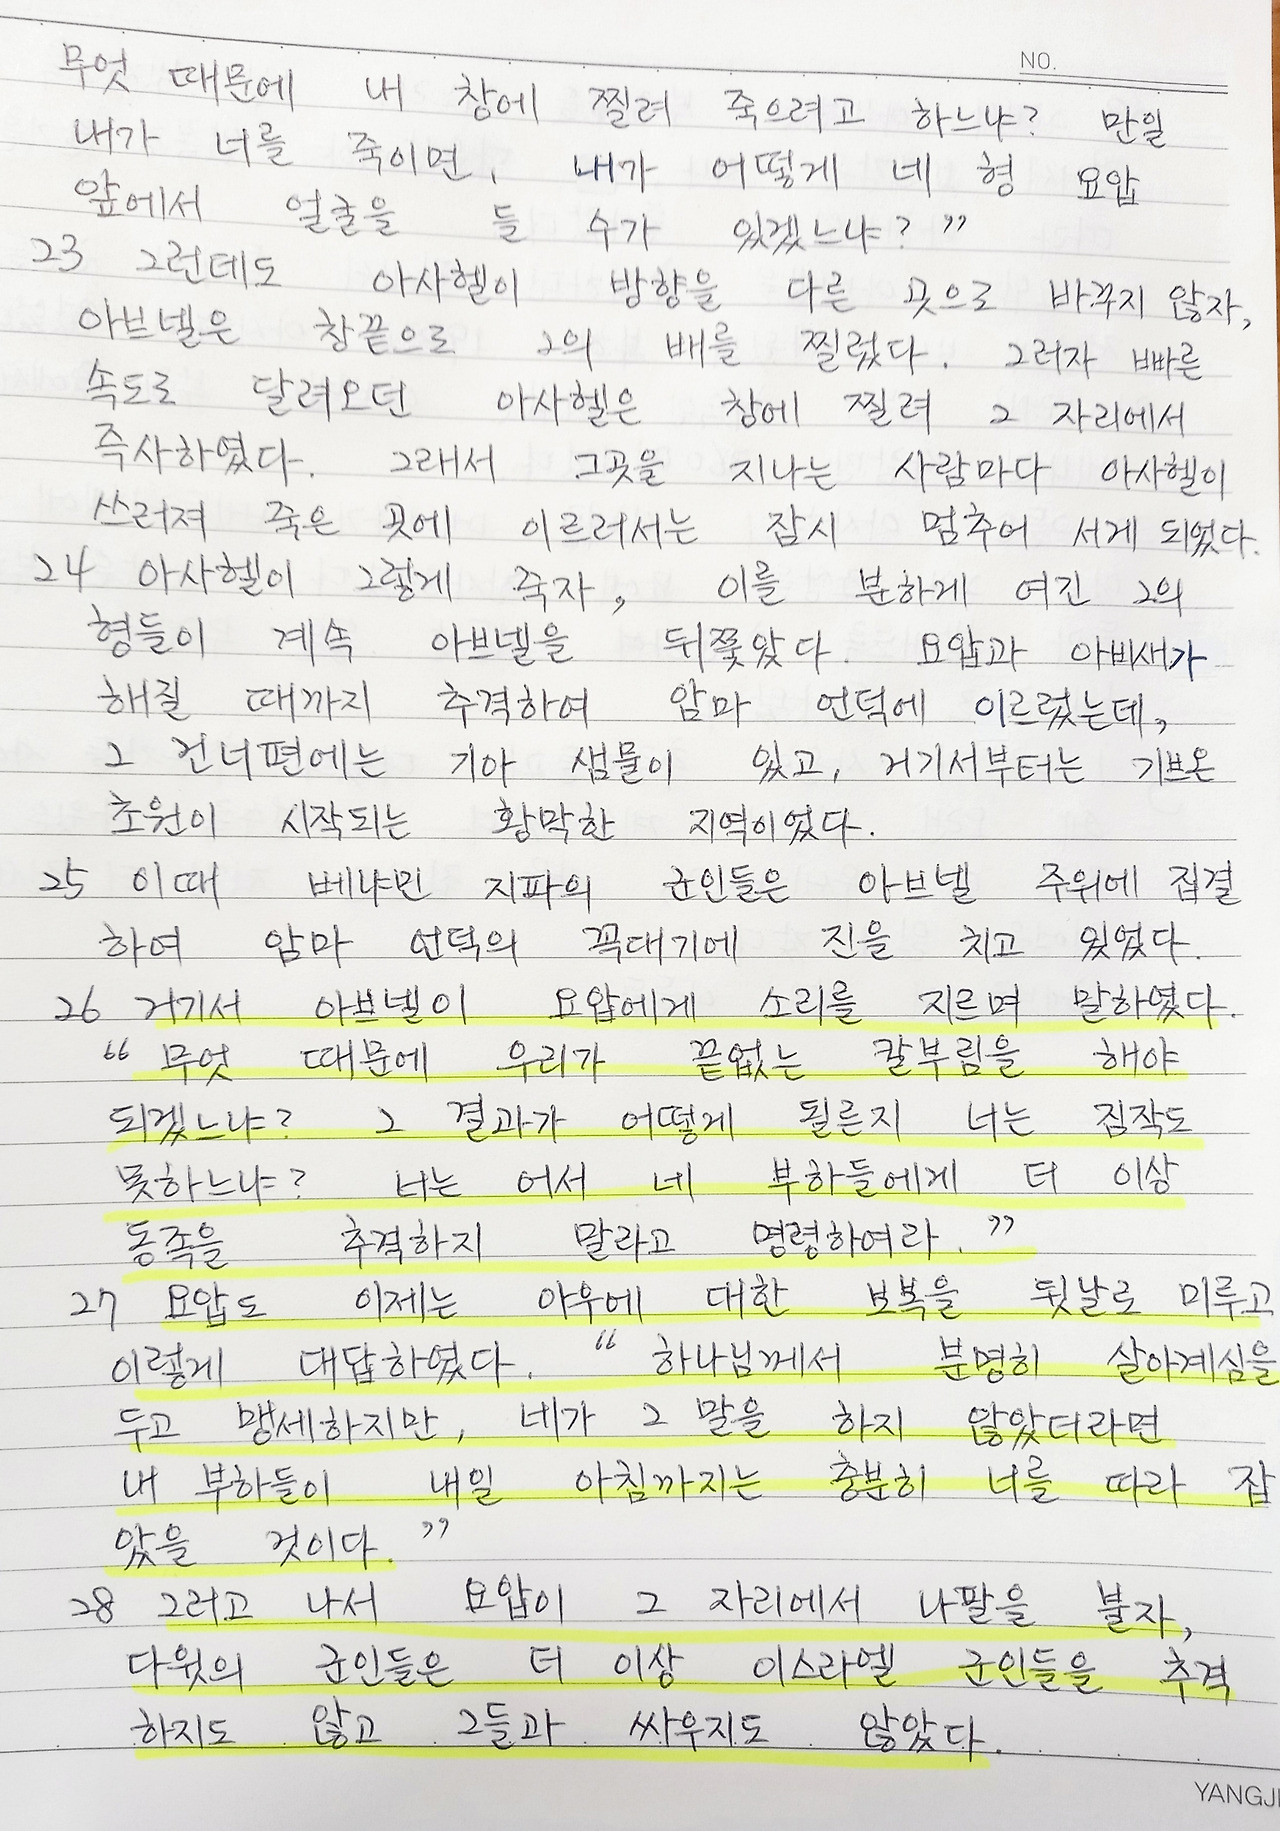 NO.
무엇 때문에 내 창에 찔려 죽으려고 하느냐? 만일
내가 너를 죽이면, 내가 어떻게 네 형 요압
앞에서 얼굴을 들 수가 있겠느냐?”
23 그런데도 아사헬이 방향을 다른 곳으로 바꾸지 않자,
아브넬은 창끝으로 그의 배를 찔렀다. 그러자 빠른
속도로 달려오던 아사헬은 창에 찔려 그 자리에서
즉사하였다. 그래서 그곳을 지나는 사람마다 아사헬이
쓰러져 죽은 곳에 이르러서는 잠시 멈추어 서게 되었다.
24 아사헬이 그렇게 죽자, 이를 분하게 여긴 그의
형들이 계속 아브넬을 뒤쫓았다. 요압과 아비새가
해질 때까지 추격하여 암마 언덕에 이르렀는데,
그 건너편에는 기아 샘물이 있고, 거기서부터는 기브온
초원이 시작되는 황막한 지역이었다.
25 이때 베냐민 지파의 군인들은 아브넬 주위에 집결
하여 암마 언덕의 꼭대기에 진을 치고 있었다.
26 거기서 아브넬이 요압에게 소리를 지르며 말하였다.
“무엇 때문에 우리가 끝없는 칼부림을 해야
되겠느냐? 그 결과가 어떻게 될른지 너는 짐작도
못하느냐? 너는 어서 네 부하들에게 더 이상
동족을 추격하지 말라고 명령하여라.”
27 요압도 이제는 아우에 대한 보복을 뒷날로 미루고
이렇게 대답하였다. “하나님께서 분명히 살아계심을
두고 맹세하지만, 네가 그 말을 하지 않았더라면
내 부하들이 내일 아침까지는 충분히 너를 따라 잡
았을 것이다.”
28 그러고 나서 요압이 그 자리에서 나팔을 불자,
다윗의 군인들은 더 이상 이스라엘 군인들을 추격
하지도 않고 그들과 싸우지도 않았다.
YANGJI